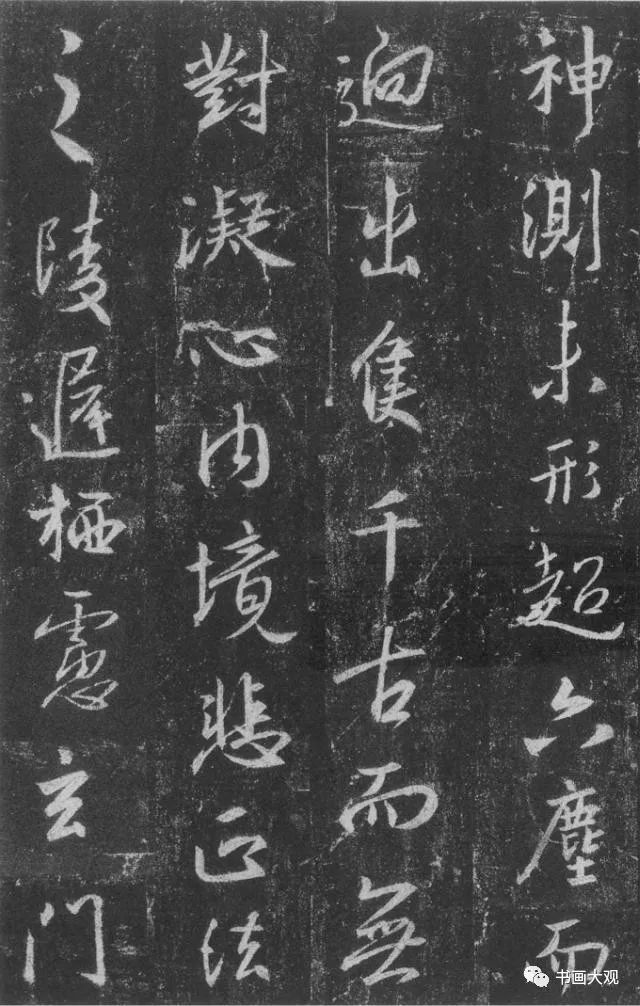 神測未形超六塵而
迥出隻千古而無
對凝心內境悲正法
之陵遲栖慮玄門
书画大观